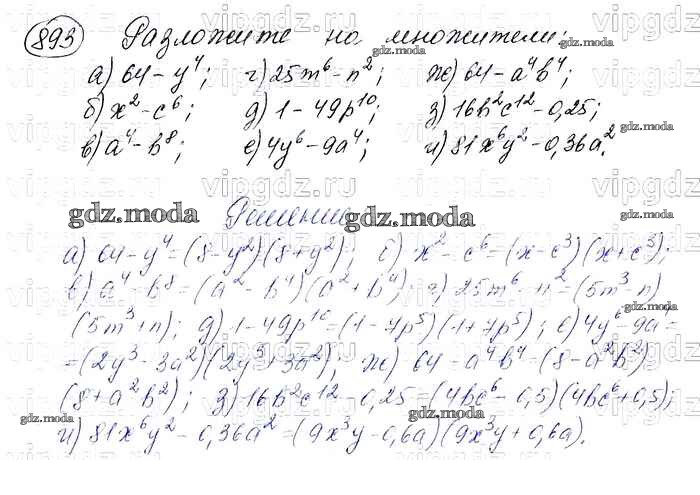 893 Разложите на множители:
а) 64 - y⁴; г) 25m⁶ - n²; ж) 64 - a⁴b⁴;
б) x² - c⁶; д) 1 - 49p¹⁰; з) 16b²c¹² - 0,25;
в) a⁴ - b⁸; е) 4y⁶ - 9a⁴; и) 81x⁶y² - 0,36a².
Решение
а) 64 - y⁴ = (8 - y²)(8 + y²); б) x² - c⁶ = (x - c³)(x + c³);
в) a⁴ - b⁸ = (a² - b⁴)(a² + b⁴); г) 25m⁶ - n² = (5m³ - n)
(5m³ + n); д) 1 - 49p¹⁰ = (1 - 7p⁵)(1 + 7p⁵); е) 4y⁶ - 9a⁴ =
= (2y³ - 3a²)(2y³ + 3a²); ж) 64 - a⁴b⁴ = (8 - a²b²)
(8 + a²b²); з) 16b²c¹² - 0,25 = (4bc⁶ - 0,5)(4bc⁶ + 0,5);
и) 81x⁶y² - 0,36a² = (9x³y - 0,6a)(9x³y + 0,6a).
gdz.moda
vipgdz.ru